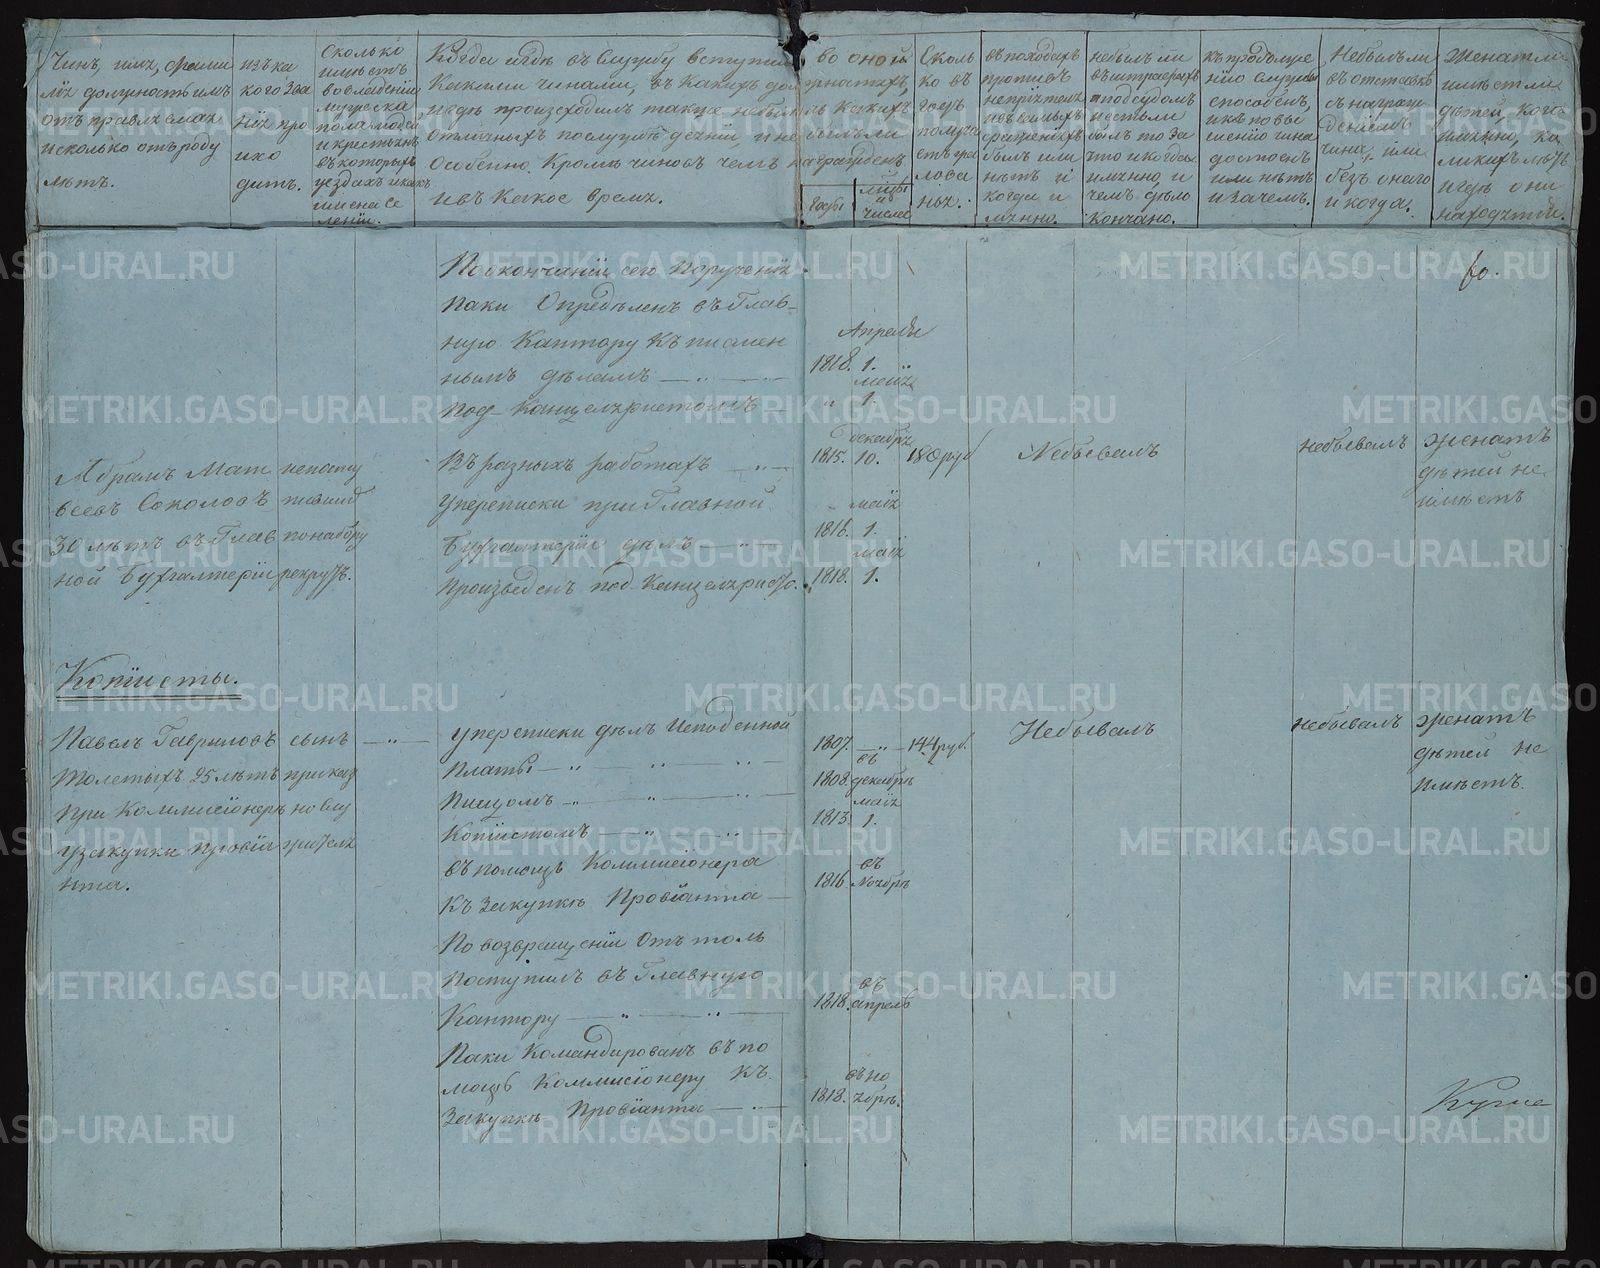 Чинъ, имя, фами
лія должность имъ
отправляемая
и сколько отъ роду
лѣтъ.
изъ ка
кого зва
нія про
исхо
дитъ.
Сколько
имѣетъ
во владѣніи
мужеска
пола людей
и крестьянъ
въ которыхъ
уездахъ и какъ
имена се
леніи.
Когда и гдѣ въ службу вступилъ и во оной
какими чинами, въ какихъ должностяхъ,
и гдѣ происходилъ также небыло ль какихъ
отличныхъ по службѣ деяній, и не былъ ли
особенно кромѣ чиновъ чемъ награжденъ
и въ какое время.
Годы
мѣсяцы
и
числа
Сколь
ко въ
годъ
получа
етъ жа
лова
нья.
въ походахъ
противъ
непріятеля
и въ самыхъ
сраженіяхъ
былъ или
нѣтъ и
когда и
мянно.
небылъ ли
въ штрафахъ
и подъ судомъ
и естьли
былъ то за
что и когда
имянно, и
чемъ дѣло
кончано.
къ продолже
нію службы
способенъ,
и къ повы
шенію чина
достоенъ
или нѣтъ
и зачемъ.
Небылъ ли
въ отставкѣ
съ награж
деніемъ
чина, или
безъ онаго
и когда.
Женатъ ли
имѣетъ ли
детей, кого
имянно, ка
кихъ лѣтъ
и гдѣ они
находятся.
60.
По окончаніи сего порученія
паки Опредѣленъ въ Глав-
ную Кантору къ писмен
нымъ дѣламъ
Апреля
1818. 1.
под-Канцеляристомъ
маія
" 1.
Абрамъ Мат
веевъ Соколовъ
30 лѣтъ въ Глав
ной Бухгалтеріи
непасту
пившій
по набору
рекрутъ.
Въ разныхъ работахъ
декабря
1815. 10.
180 руб
Небывалъ
небывалъ
женатъ
дѣтей не
имѣетъ
Упереписки при Главной
Бухгалтеріи дѣлъ
маія
1816. 1.
Произведенъ под-Канцеляристо.
маія
1818. 1.
Копіисты.
Павелъ Гавриловъ
Толстыхъ 25 лѣтъ
при Коммисіонерѣ
у закупки провіи
нта.
сынъ
приказ
но слу
жителя
упереписки дѣлъ Исподенной
Платы
1807.
144 руб.
Небывалъ
небывалъ
женатъ
дѣтей не
имѣетъ.
Пищомъ
въ
1808. декабрѣ
Копіистомъ
маія
1813. 1.
въ помощь Коммисіонера
къ закупкѣ Провіанта
въ
1816. Ноябрѣ
По возвращеніи Отъ толь
Поступилъ въ Главную
Кантору
въ
1818. апрелѣ
Паки Командированъ въ по
мощь Коммисіонеру къ
закупкѣ Провіанта
въ но
1818. ябрѣ.
METRIKI.GASO-URAL.RU